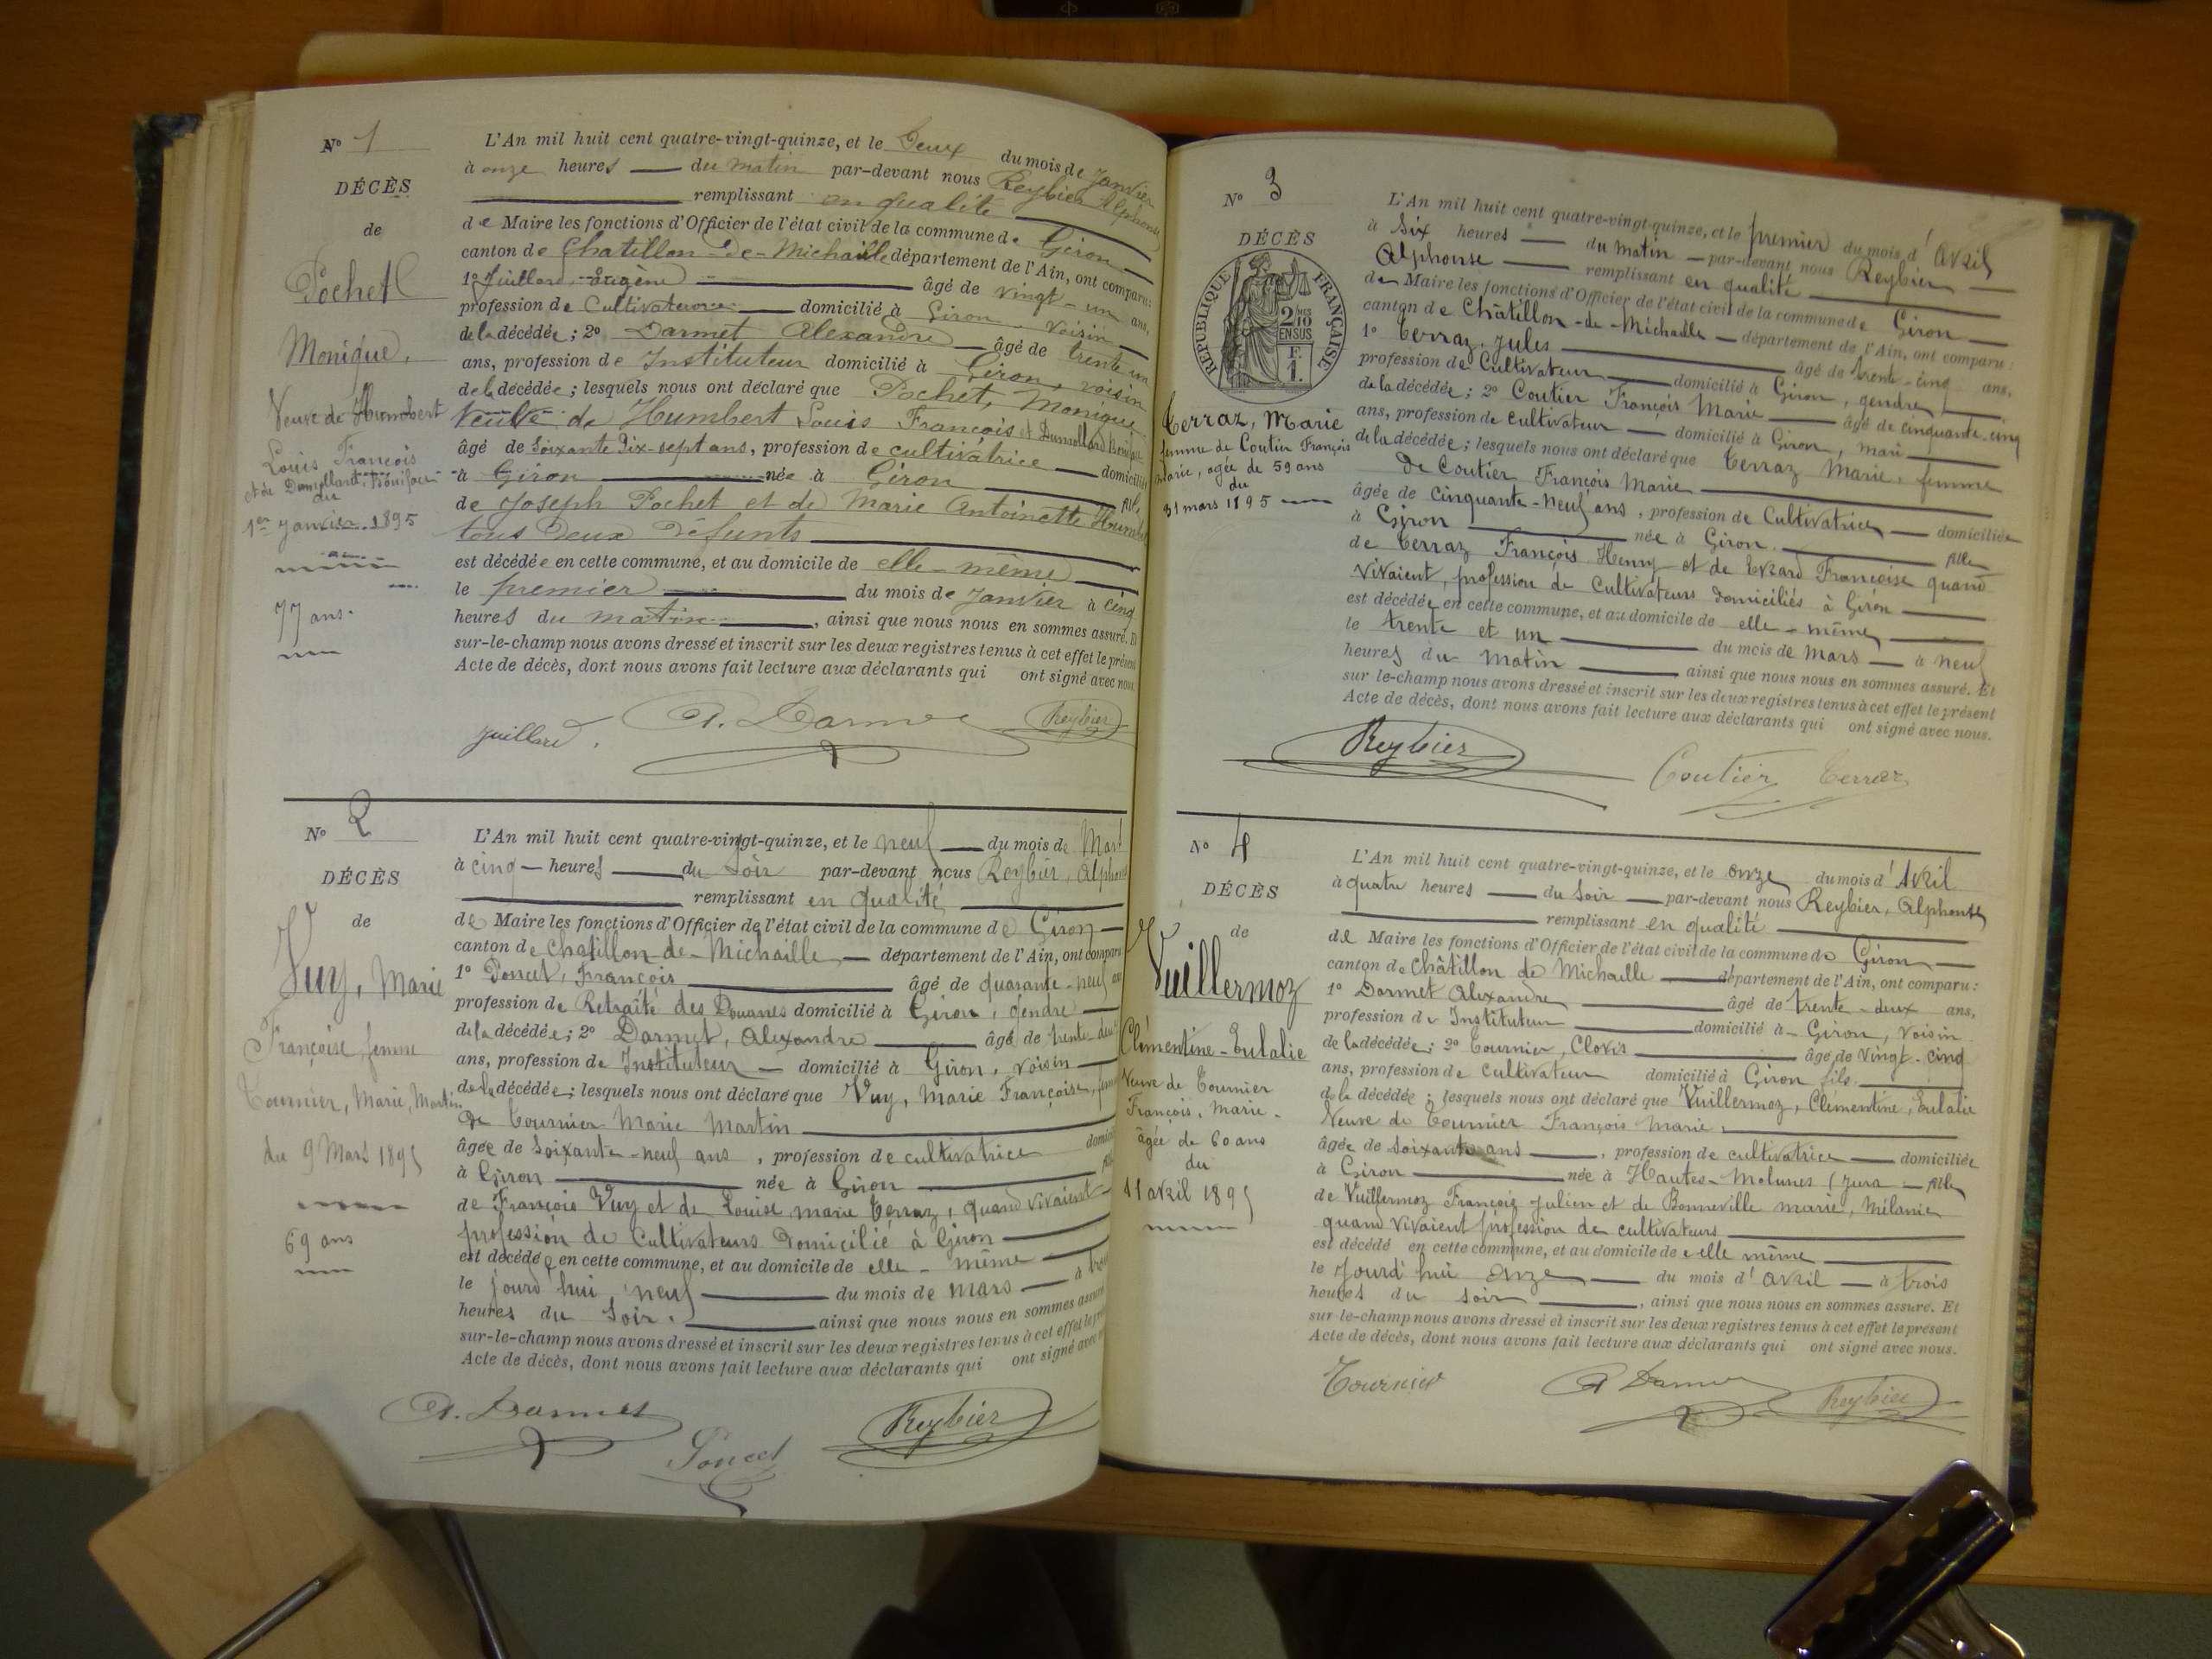 N° 1
DÉCÈS
de
Pochet
Monique,
Veuve de Humbert
Louis François
du
1er Janvier 1895
77 ans.
L'An mil huit cent quatre-vingt-quinze, et le Deux du mois de Janvier
à onze heures du matin par-devant nous Reybier Alphonse
remplissant en qualité
de Maire les fonctions d'Officier de l'état civil de la commune de Giron
canton de Chatillon-de-Michaille département de l'Ain, ont comparu:
1° Juillard Eugène âgé de vingt-un ans,
profession de Cultivateur domicilié à Giron voisin
de la décédée; 2° Darmet Alexandre âgé de trente un
ans, profession de Instituteur domicilié à Giron, voisin
de la décédée; lesquels nous ont déclaré que Pochet, Monique
Veuve de Humbert Louis François et
âgé de Soixante Dix-sept ans, profession de cultivatrice domiciliée
à Giron née à Giron fille
de Joseph Pochet et de Marie Antoinette Humbert
tous Deux Défunts
est décédée en cette commune, et au domicile de elle-même
le premier du mois de Janvier à cinq
heures du matin, ainsi que nous nous en sommes assuré. Et
sur-le-champ nous avons dressé et inscrit sur les deux registres tenus à cet effet le présent
Acte de décès, dont nous avons fait lecture aux déclarants qui ont signé avec nous
Juillard. A. Darmet Reybier
N° 2
DÉCÈS
de
Vuy, Marie
Françoise, femme
Tournier, Marie, Martin
du 9 Mars 1895
69 ans
L'An mil huit cent quatre-vingt-quinze, et le neuf du mois de Mars
à cinq heures du Soir par-devant nous Reybier, Alphonse
remplissant en qualité
de Maire les fonctions d'Officier de l'état civil de la commune de Giron
canton de Chatillon-de-Michaille département de l'Ain, ont comparu
1° Poncet, François âgé de quarante-neuf ans
profession de Retraité des Douanes domicilié à Giron, gendre
de la décédée; 2° Darmet, Alexandre âgé de trente deux
ans, profession de Instituteur domicilié à Giron, voisin
de la décédée; lesquels nous ont déclaré que Vuy, Marie Françoise, femme
De Tournier Marie Martin
âgée de Soixante-neuf ans, profession de cultivatrice domiciliée
à Giron née à Giron fille
de François Vuy et de Louise Marie Terraz, quand vivaient
profession de Cultivateurs Domicilié à Giron
est décédée en cette commune, et au domicile de elle-même
le jourd'hui neuf du mois de mars à trois
heures du Soir. ainsi que nous nous en sommes assuré
sur-le-champ nous avons dressé et inscrit sur les deux registres tenus à cet effet le présent
Acte de décès, dont nous avons fait lecture aux déclarants qui ont signé avec nous
A. Darmet Poncet Reybier
N° 3
DÉCÈS
RÉPUBLIQUE FRANÇAISE
2 10MES
EN SUS
F.
1.
Terraz, Marie
femme de Coutier François
Marie, agée de 59 ans
du
31 mars 1895
L'An mil huit cent quatre-vingt-quinze, et le premier du mois d'Avril
à Six heures du matin par-devant nous Reybier
Alphonse remplissant en qualité
de Maire les fonctions d'Officier de l'état civil de la commune de Giron
canton de Châtillon-de-Michaille département de l'Ain, ont comparu:
1° Terraz, Jules âgé de trente-cinq ans,
profession de Cultivateur domicilié à Giron, gendre
de la décédée; 2° Coutier François Marie âgé de cinquante-cinq
ans, profession de cultivateur domicilié à Giron, mari
de la décédée; lesquels nous ont déclaré que Terraz Marie, femme
De Coutier François Marie
âgée de Cinquante-Neuf ans, profession de Cultivatrice domiciliée
à Giron née à Giron. fille
de Terraz François Henry et de Evrard Françoise quand
vivaient, profession de Cultivateurs domiciliés à Giron
est décédée en cette commune, et au domicile de elle-même
le trente et un du mois de mars à neuf
heures du matin ainsi que nous nous en sommes assuré. Et
sur-le-champ nous avons dressé et inscrit sur les deux registres tenus à cet effet le présent
Acte de décès, dont nous avons fait lecture aux déclarants qui ont signé avec nous.
Reybier Coutier Terraz
N° 4
DÉCÈS
de
Vuillermoz
Clémentine-Eulalie
Veuve de Tournier
François, Marie-
âgée de 60 ans
du
11 avril 1895
L'An mil huit cent quatre-vingt-quinze, et le onze du mois d'Avril
à quatre heures du Soir par-devant nous Reybier, Alphonse
remplissant en qualité
de Maire les fonctions d'Officier de l'état civil de la commune de Giron
canton de Châtillon de Michaille département de l'Ain, ont comparu:
1° Darmet Alexandre âgé de trente-deux ans,
profession de Instituteur domicilié à Giron, voisin
de la décédée; 2° Tournier, Clovis âgé de vingt-cinq
ans, profession de cultivateur domicilié à Giron fils.
de la décédée; lesquels nous ont déclaré que Vuillermoz, Clémentine, Eulalie
Veuve de Tournier François Marie.
âgée de soixante ans, profession de cultivatrice domiciliée
à Giron née à Hautes-Molunes (Jura fille
de Vuillermoz François Julien et de Bonneville Marie, Mélanie
quand vivaient profession de cultivateurs
est décédé en cette commune, et au domicile de elle même
le Jourd'hui onze du mois d'avril à trois
heures du soir, ainsi que nous nous en sommes assuré. Et
sur-le-champ nous avons dressé et inscrit sur les deux registres tenus à cet effet le présent
Acte de décès, dont nous avons fait lecture aux déclarants qui ont signé avec nous.
Tournier A Darmet Reybier